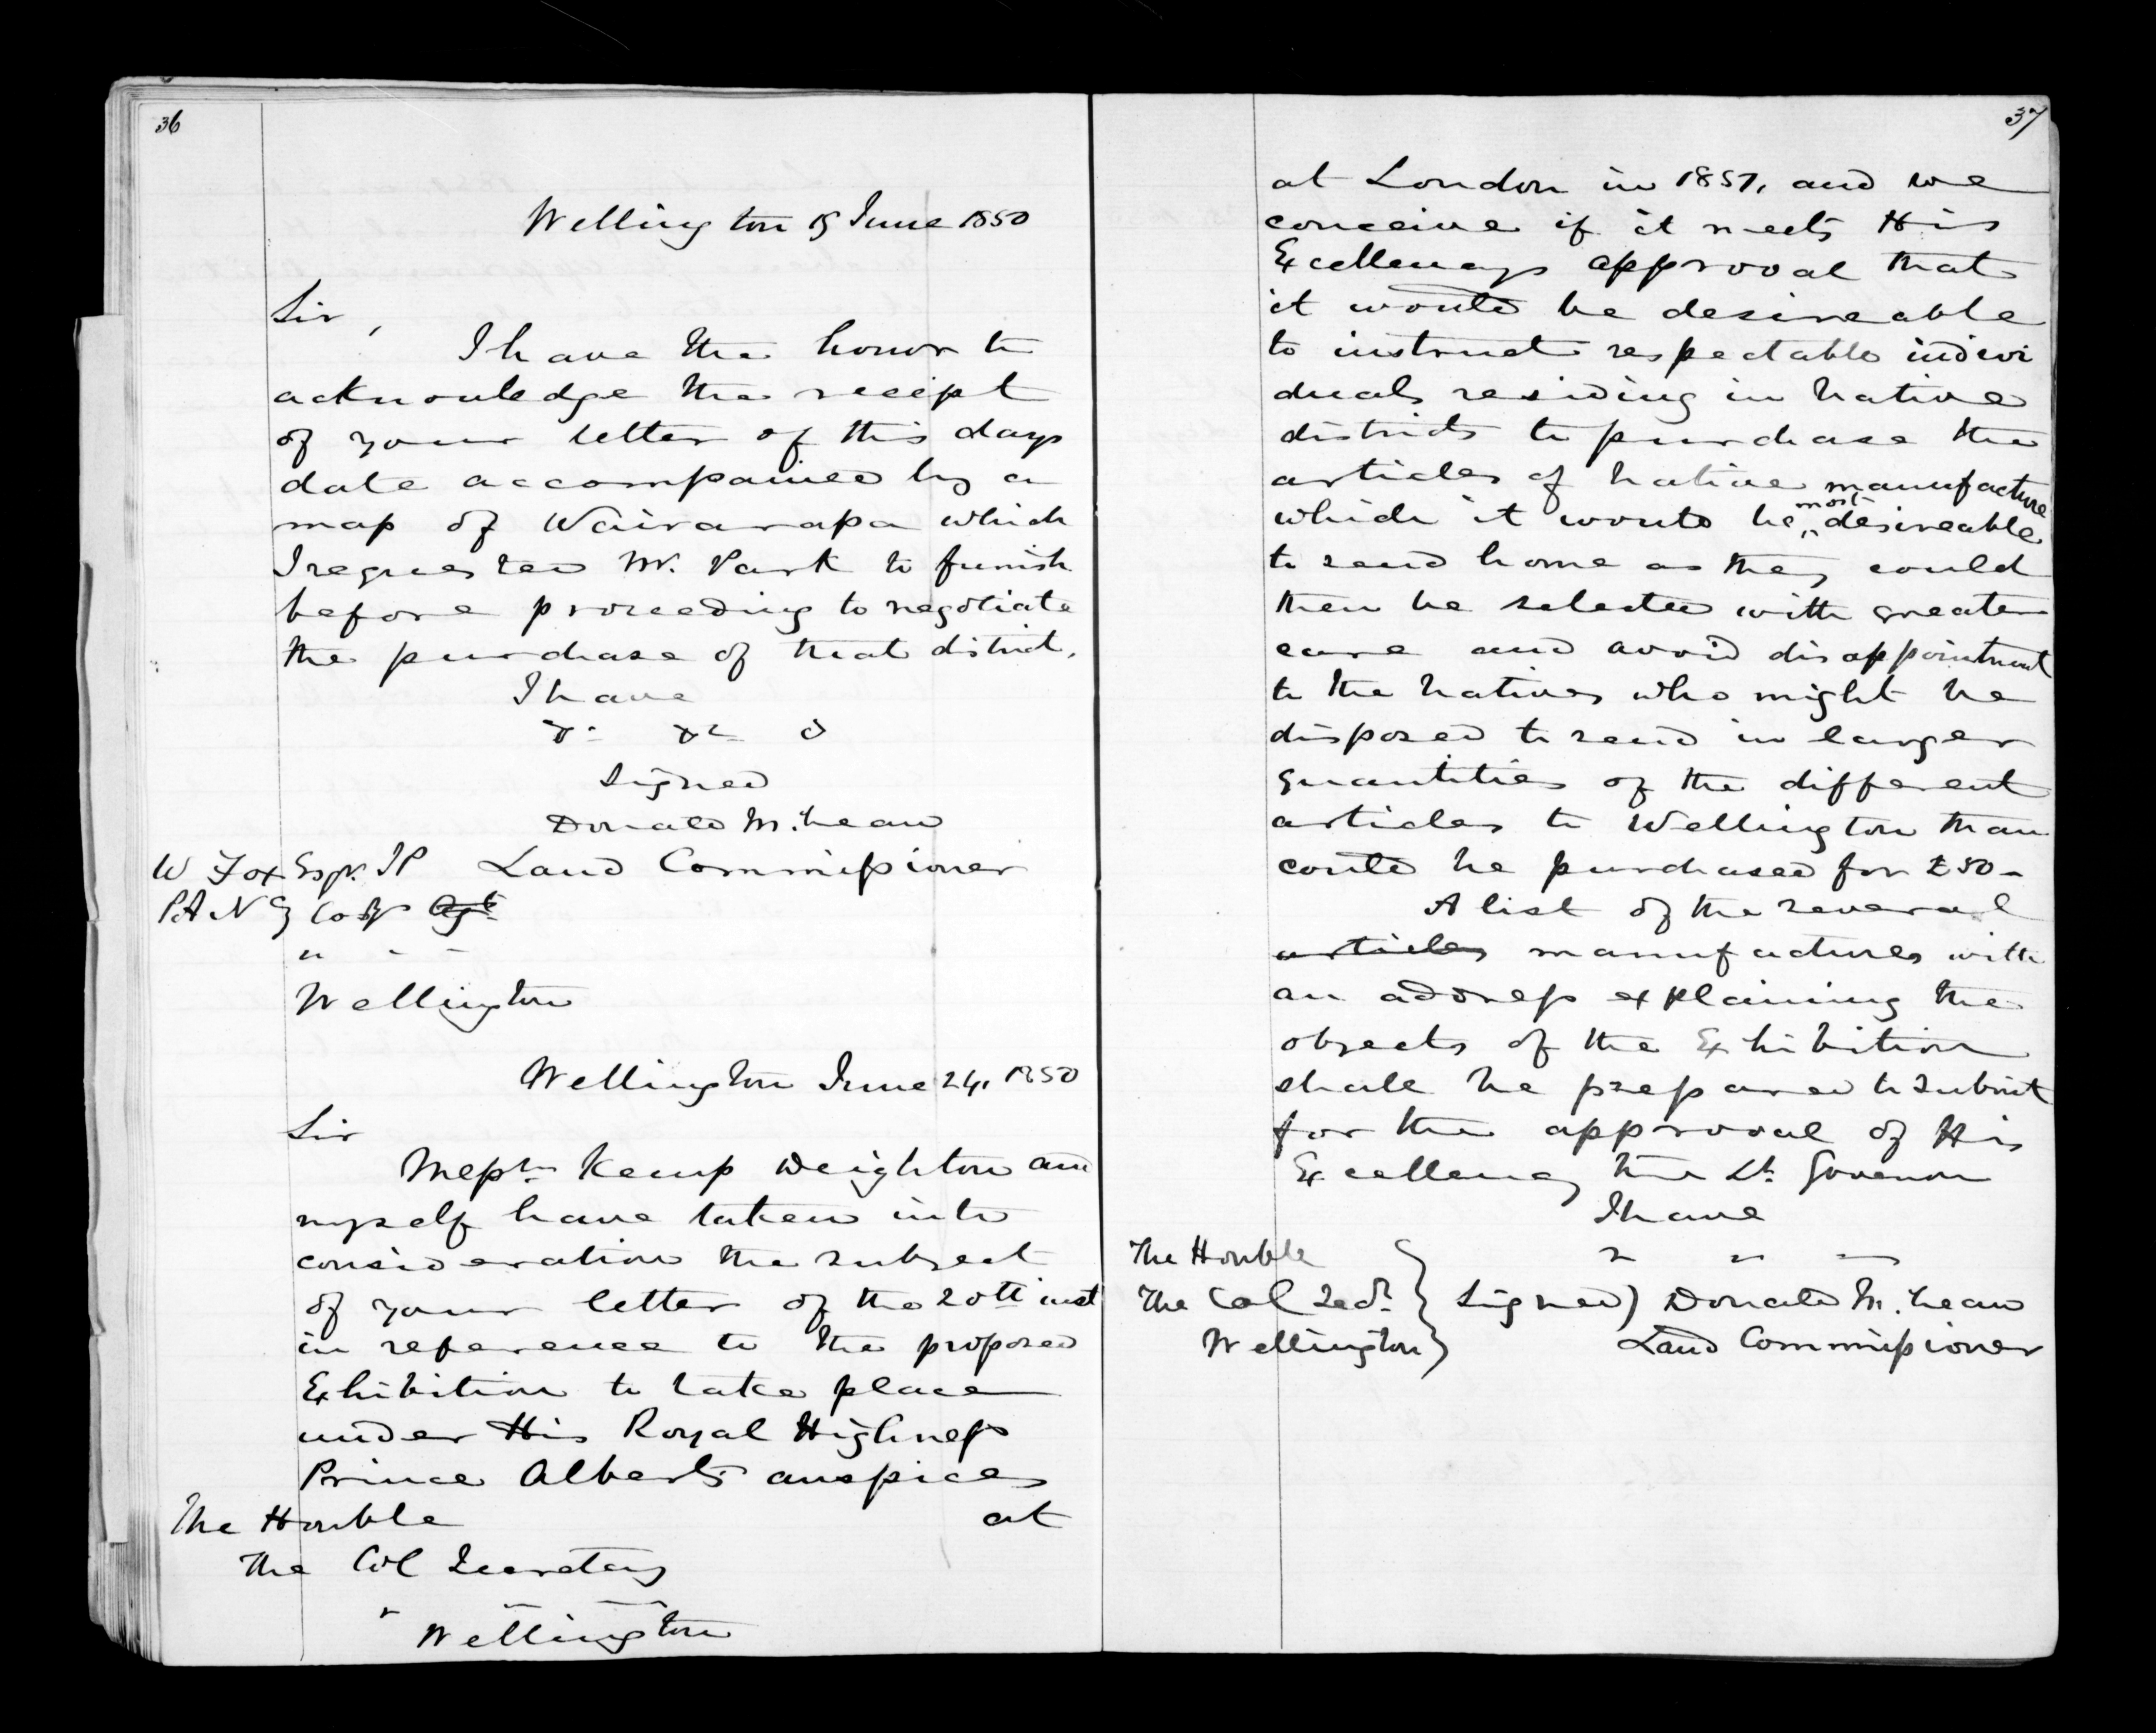 36
Wellington 15 June 1850
Sir,
I have the honor to
acknowledge the receipt
of your letter of this days
date accompanied by a
map of Wairarapa which
I requested Mr. Park to furnish
before proceeding to negotiate
the purchase of that district.
I have
&c &c &
Signed
Donald McLean
W Fox Esqr. JP Land Commissioner
PA NZ Coy Agt
" - -
Wellington
Wellington June 24, 1850
Sir
Messrs. Kemp Deighton and
myself have taken into
consideration the subject
of your letter of the 20th inst
in reference to the proposed
Exhibition to take place
under His Royal Highness
Prince Alberts auspices
The Honble at
The Col Secretary
Wellington
37
at London in 1851, and we
conceive if it meets His
Excellencys approval that
it would be desireable
to instruct respectable indivi
duals residing in Native
districts to purchase the
articles of Native manufacture
which it would be most desireable
to send home as they could
then be selected with greater
care and avoid disappointment
to the Natives who might be
disposed to send in larger
quantities of the different
articles to Wellington than
could be purchased for £50-
A list of the several
articles manufactures with
an address explaining the
objects of the Exhibition
shall be prepared to submit
for the approval of His
Excellency the Lt. Govenor
I have
The Honble " " -
The Col Secr. } Signed) Donald McLean
Wellington Land Commissioner